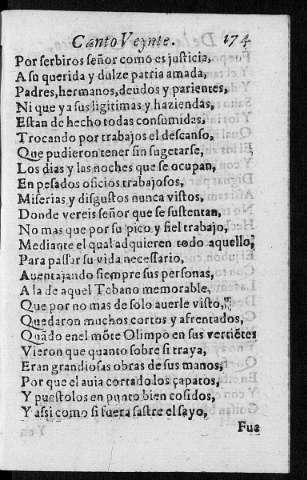 Canto Veynte. 174
Por serbiros señor como es justicia,
A su querida y dulze patria amada,
Padres, hermanos, deudos y parientes,
Ni que ya sus ligitimas y haziendas,
Estan de hecho todas consumidas,
Trocando por trabajos el descanso,
Que pudieron tener sin sugetarse,
Los dias y las noches que se ocupan,
En pesados oficios trabajosos,
Miserias y disgustos nunca vistos,
Donde vereis señor que se sustentan,
No mas que por su pico y fiel trabajo,
Mediante el qual adquieren todo aquello,
Para passar su vida necessario,
Auentajando siempre sus personas,
A la de aquel Tebano memorable,
Que por no mas de solo auerle visto,
Quedaron muchos cortos y afrentados,
Quãdo enel mõte Olimpo en sus vertiẽtes
Vieron que quanto sobre si traya,
Eran grandiosas obras de sus manos,
Por que el auia cortado los çapatos,
Y puestolos en punto bien cosidos,
Y assi como si fuera sastre el sayo,
Fue